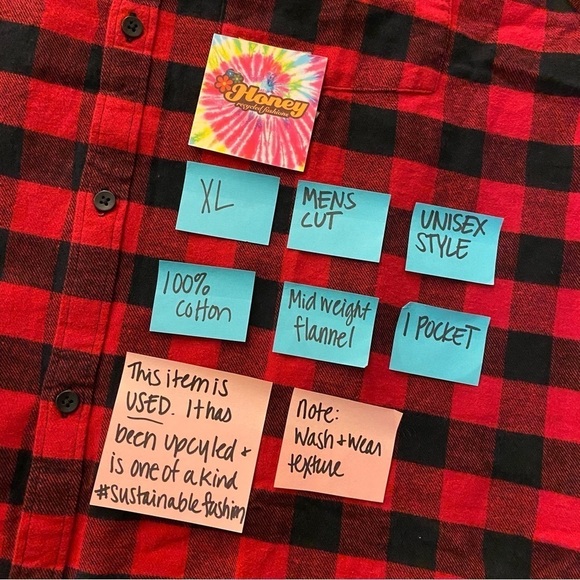 Honey
recycled fashions
XL
MENS
CUT
UNISEX
STYLE
100%
Cotton
Mid weight
flannel
1 POCKET
This item is
USED. It has
been upcyled +
is one of a kind
#sustainable fashion
note:
Wash + wear
texture